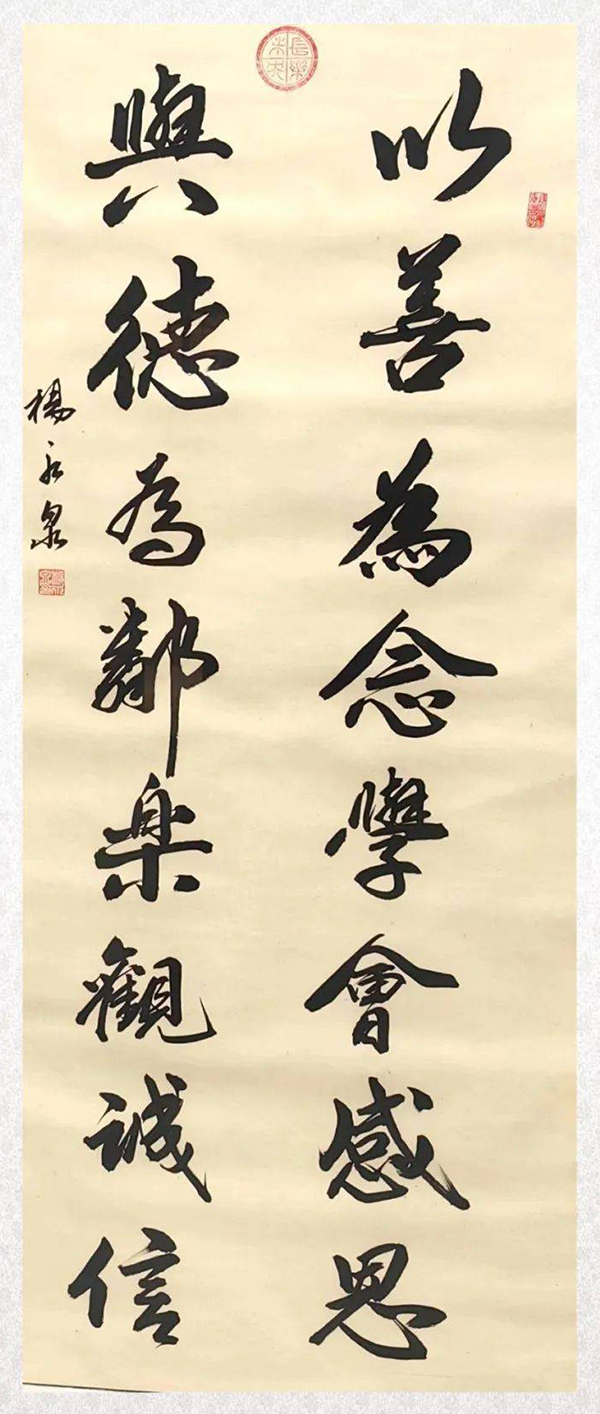 以善為念學會感恩
與德為鄰楽觀誠信
楊永泉